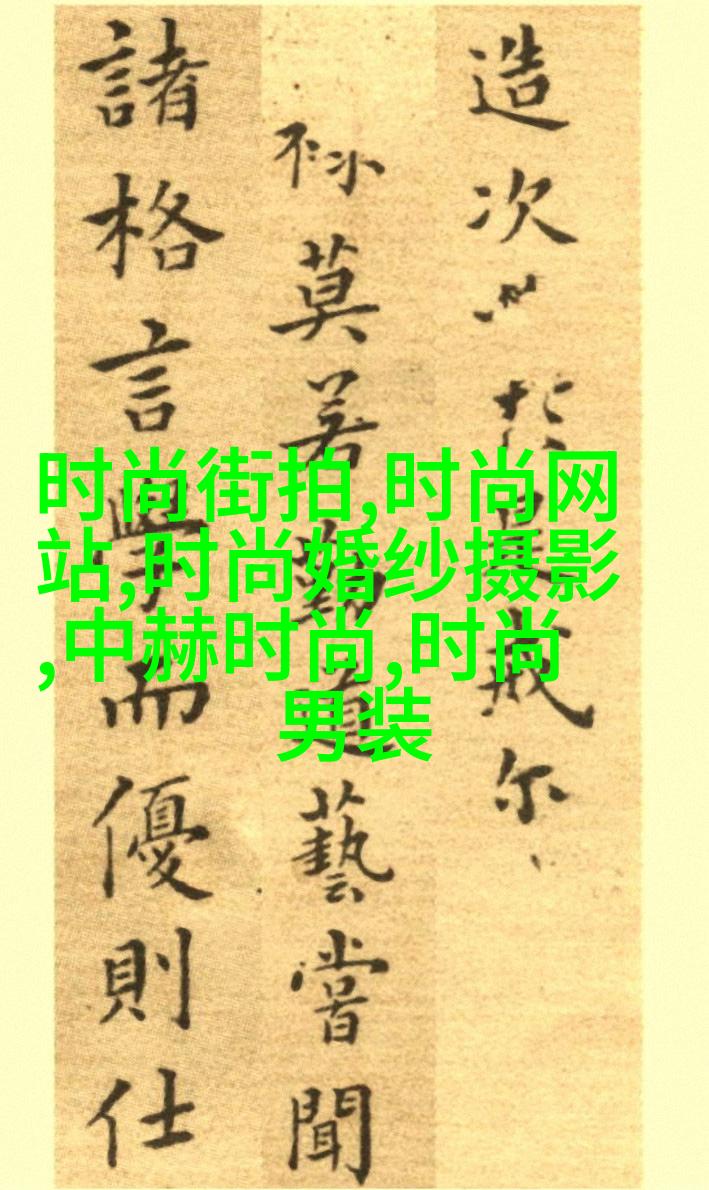 造次於是戒尔
莫若勤道藝嘗聞
諸格言學而優則仕
时尚街拍,时尚网
站,时尚婚纱摄影
,中赫时尚,时尚
男装